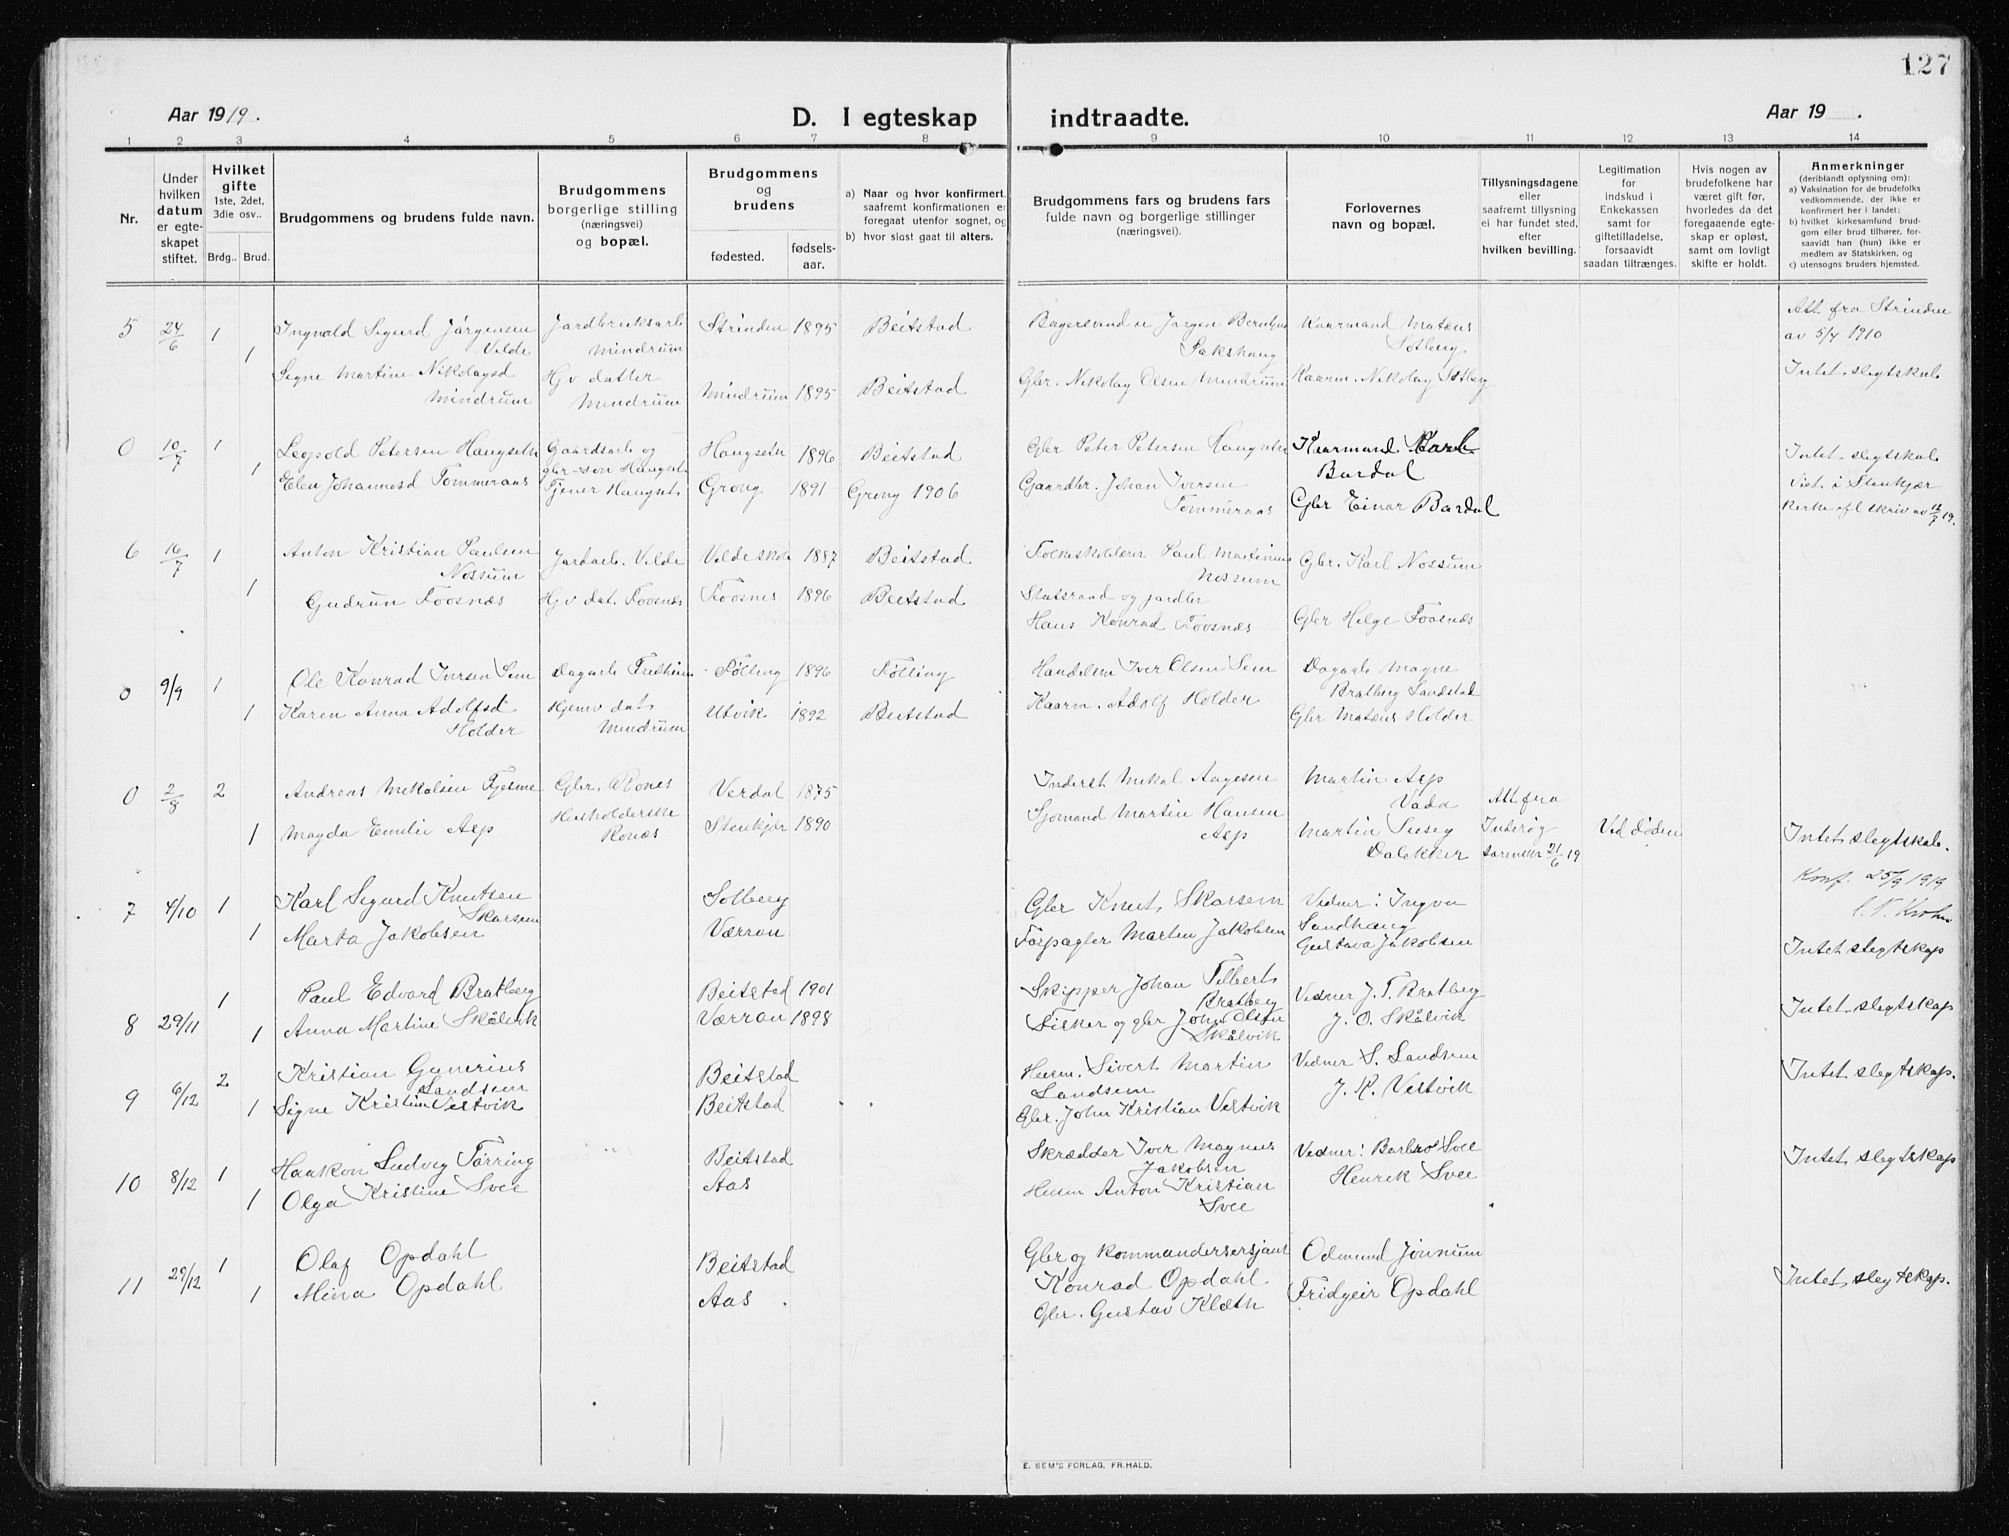 127
Aar 1919.
D. I egteskap indtraadte.
Aar 19 .
1 2 3 4 5 6 7 8 9 10 11 12 13 14
Nr.
Under hvilken datum er egte-skapet stiftet.
Hvilket gifte 1ste, 2det, 3die osv..
Brdg.. Brud.
Brudgommens og brudens fulde navn.
Brudgommens borgerlige stilling (næringsvei) og bopæl.
Brudgommens og brudens
fødested. fødsels-aar.
a) Naar og hvor konfirmert, saafremt konfirmationen er foregaat utenfor sognet, og
b) hvor sidst gaat til alters.
Brudgommens fars og brudens fars fulde navn og borgerlige stillinger (næringsvei).
Forlovernes navn og bopæl.
Tillysningsdagene eller saafremt tillysning ei har fundet sted, efter hvilken bevilling.
Legitimation for indskud i Enkekassen samt for giftetilladelse, forsaavidt saadan tiltrænges.
Hvis nogen av brudefolkene har været gift før, hvorledes da det foregaaende egte-skap er opløst, samt om lovligt skifte er holdt.
Anmerkninger (deriblandt oplysning om):
a) Vaksination for de brudefolks vedkommende, der ikke er konfirmert her i landet;
b) hvilket kirkesamfund brud-gom eller brud tilhører, for-saavidt han (hun) ikke er medlem av Statskirken, og
c) utensogns bruders hjemsted.
5 24/6 1 Ingvald Sigurd Jørgensen Jordbruksarb Strinden 1895 Beitstad Jørgen Kaarmand Matæus Att. fra Strinden
Velde Mindrum Sotberg av 5/4 1910
1 Signe Martine Nikolaysd Hjv datter Mindrum 1895 Beitstad Gbr. Nikolay Olsen Mindrum Kaarm. Nikolay Sotberg Intet slegtskab
Mindrum Mindrum
0 10/7 1 Leopold Petersen Haugseth Gaardsarb og Haugseth 1896 Beitstad Gbr Peter Petersen Haugseth Kaarmand Karl Intet slegtskab
gbr-søn Haugset Bardal
1 Elen Johannesd Tømmeraas Tjener Haugset Grong 1891 Grong 1906 Gaardbr. Johan Iversen Gbr Einar Bardal Viet i Stenkjær
Tømmeraas kirke skriv av 12/7 19.
6 16/7 1 Anton Kristian Paulsen Jordarb. Velde Velde skole 1887 Beitstad Folkeskolelærer Paul Martinus Gbr. Karl Nossum
Nossum Nossum
1 Gudrun Foosnæs Hjv dat. Foosnæs Foosnes 1896 Beitstad Statsraad og jordbr
Hans Konrad Foosnæs Gbr Helge Foosnæs
0 9/9 1 Ole Konrad Iversen Sem Dagarb Følling 1896 Følling Handelsm Iver Olsen Sem Dagarb Magne
Bratberg Sandstad
1 Karen Anna Adolfsd Hjemv dat Utvik 1892 Beitstad Kaarm. Adolf Holder Gbr Matæus Holder
Holder Mindrum
0 2/8 2 Andreas Mikalsen Tjesme Gbr. Rones Verdal 1875 Inderst Mikal Aagesen Martin Asp
Vada Att fra
1 Magda Emilie Asp Husholderske Stenkjær 1890 Sjømand Martin Hansen Martin Inderøy Ved døden Intet slegtskab.
Ronæs Asp 21/6 19
7 4/10 1 Karl Sigurd Knutsen Solberg Gbr Knut Skarsem Vidner: Ingva Konf. 25/9 1919
Skarsem Sandhaug
1 Marta Jakobsen Værran Forpagter Martin Jakobsen Gustava Jakobsen Intet slegtskap
8 29/11 1 Paul Edvard Bratberg Beitstad 1901 Skipper Johan Filbert Vidner J. F. Bratberg
Bratberg
1 Anna Martine Skålvik Værran 1898 Fisker og gbr John Olsen J. O. Skålvik Intet slegtskap
Skålvik
9 6/12 2 Kristian Gunerius Beitstad Husm. Sivert Martin Vidner S. Landsem Intet slegtskap.
Landsem Landsem
1 Signe Kristine Vestvik Beitstad Gbr. John Kristian Vestvik J. K. Vestvik
10 8/12 1 Haakon Ludvig Tørring Beitstad Skrædder Iver Magnus Vidner: Barbro Svee Intet slegtskap
Jakobsen
1 Olga Kristine Svee Aas Husm Anton Kristian Henrik Svee
Svee
11 29/12 1 Olaf Opdahl Beitstad Gbr og kommandersersjant Odmund Jønnum
Konrad Opdahl
1 Mina Opdahl Aas Gbr. Gustav Klæth Fridgeir Opdahl Intet slegtskap.
E. SEM'S FORLAG, FR.HALD.